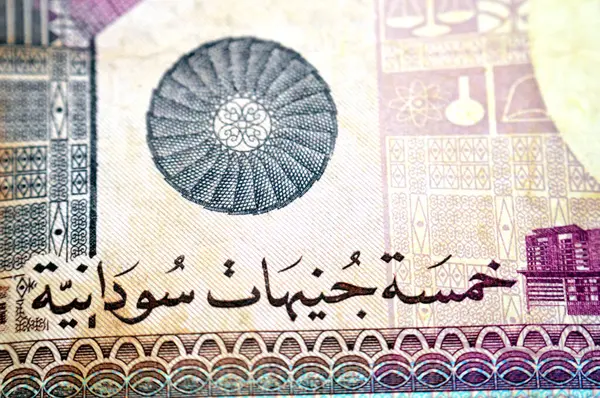 خمسَة جُنيهَات سُودَانيّة